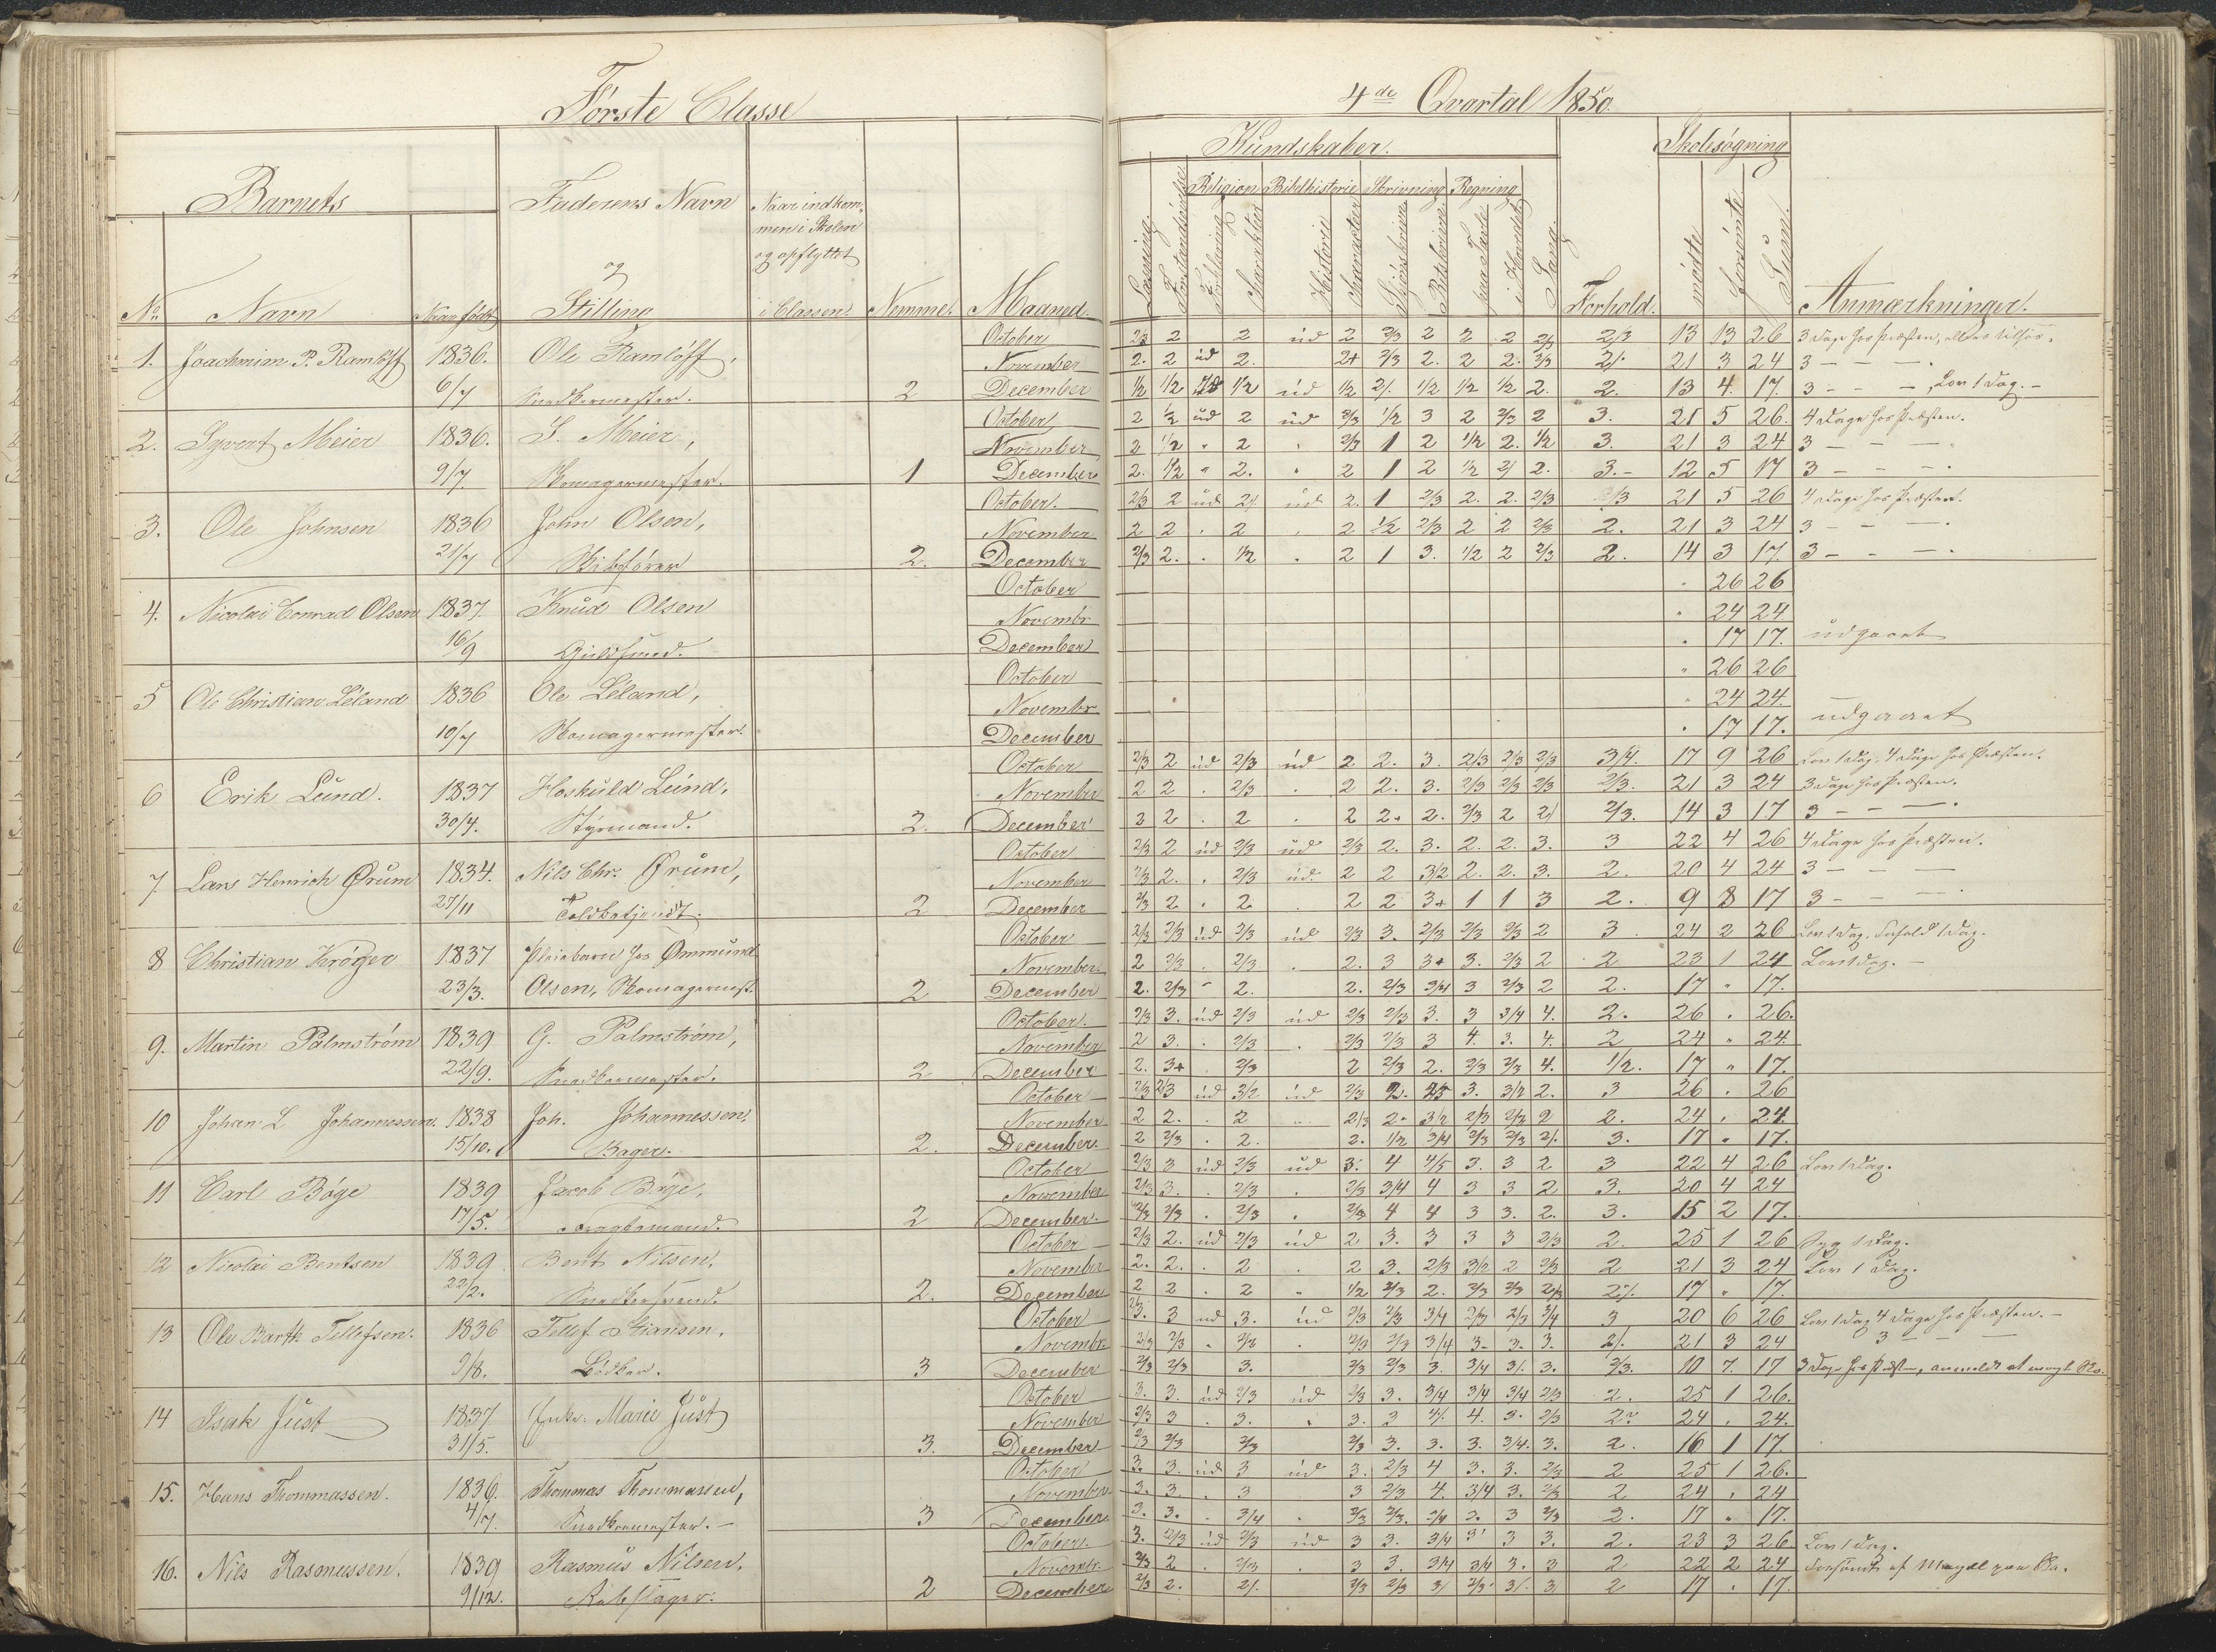 Første Classe
4de Qvartal 1850.
Barnets
Faderens Navn
og
Stilling
Naar indkom-
men i Skolen
og opflyttet
i Classen
Nemme.
Maaned.
No
Navn
Naar født
Kundskaber.
Religion Bibelhistorie Skrivning Regning
Læsning.
Historie
Sang.
Forhold.
Skolesøgning
mødte
forsømte
Anmærkninger.
1. Joachmim P. Ramløff 1836. Ole Ramløff,
6/7 Snedkermester. 2
October 2/3 2 2 ud 2 2/3 2 2 2 2/3 2/3 13 13 26
November 2. 2 ud 2. 2+ 2/3 2. 2 2. 2/3 21 3 24 3 - - -
December 1/2 1/2 1/2 ud 1/2 1/2 1/2 1/2 2. 2. 13 4. 17. 3 - - - , Lov 1 Dag. -
2. Syvert Meier 1836. S. Meier,
9/7. Skomagermester. 1
October 2 ud 2 ud 2/3 1/2 3 2 2/3 2 3. 21 5 26. 4 Dage hos Præsten.
November 2 1/2 " 2 " 2/3 1 2 1/2 2. 1/2 3. 21 3 24 3 - - -
December 2. 1/2 " 2. " 2 1 2 1/2 2/ 2. 3.- 12 5 17 3 - - -
3. Ole Johnsen 1836 John Olsen,
21/7 Skibsfører 2.
October. 2/3 2 ud 2/. ud 2. 1 2/3 2. 2. 2/3 2/3 21 5 26 4 Dage hos Præsten.
November 2 2 . 2 . 2 1/2 2/3 2 2 2/3 2. 21 3 24 3 - - -
December 2/3 2. . 1/2 . 2 1 3. 1/2 2 2/3 2. 14 3 17. 3 - - -
4. Nicolai Conrad Olsen 1837. Knud Olsen
16/9 Guldsmed.
October " 26 26
Novembr " 24 24
December " 17 17. udgaaet
5 Ole Christian Léland 1836 Ole Léland,
10/7 Skomagermester.
October " 26 26
Novembr " 24 24.
December " 17 17. udgaaet
6 Erik Lund. 1837 Hoskuld Lund,
30/4. Styrmand. 2.
October 2/3 2 ud 2/3 ud 2 2. 3. 2/3 2/3 2/3 3/4. 17 9 26 Lov 1 Dag. 4 Dage hos Præsten.
November 2 2 . 2/3 . 2 2. 3. 2/3 2/3 2/3 2/3. 21 3 24 3 Dage hos Præsten.
December 2 2 . 2 . 2 2. 2. 2/3 2 2/ 2/3. 14 3 17 3 - - -
7. Lars Henrich Ørum 1834. Nils Chr. Ørum,
27/11 Toldbetjendt. 2
October 2/3 2 ud 2/3 ud 2/3 2. 3. 2. 2. 3. 3 22 4 26 4 Dage hos Præsten.
November 2/3 2. . 2/3 ud. 2 2 3/2 2. 2. 3. 2. 20 4 24 3 - - -
December 2/3 2 . 2 2 2 3+ 1 1 3 2. 9 8 17 3 - - -
8 Christian Krøger 1837 Pleiebarn hos Ommund
23/3. Olsen, Skomagermst. 2
October 2/3 2/3 ud 2/3 ud 2/3 3. 2/3 2/3 2/3 2 3. 24 2 26 Lov 1 Dag.
November 2 2/3 . 2/3 . 2. 3 3+ 3. 2/3 2 2 23 1 24 Lov 1 Dag. -
December 2. 2/3 " 2. 2. 2/3 3/4 3 2/3 2 2. 17 " 17.
9. Martin Palmstrøm 1839 G. Palmstrøm,
22/9. Snedkermester. 2
October. 2/3 3. ud 2/3 ud 2/3 2/3 3. 3 3/4 4. 2. 26 . 26.
November 2 3. . 2/3 . 2/3 2/3 3 4. 3. 4. 2 24 " 24
December 2. 3+ 2/3 2 2/3 2. 2/3 2/3 4. 1/2. 17 " 17.
10 Johan L Johannessen. 1838 Joh. Johannessen,
15/10. Bager. 2.
October 2/3 2/3 ud 3/2 ud 2/3 3. 3/2 2. 3 26 . 26
November 2 2. . 2 " 2/3 2. 3/2 2/3 2/3 2 2. 24 . 24
December. 2 2/3 . 2. 2. 1/2 3/4 2/3 2/3 2/. 3. 17 " 17.
11 Carl Bøge 1839 Jacob Bøge,
17/5. 2
October 2/3 3 ud 2/3 ud 3. 4 4/5 3. 3 2 3 22 4 26 Lov 1 Dag.
November 2/3 3. . 2/3 . 2/3 3/4 4 3 3 2 3. 20 4 24
December. 2/3 2/3 . 2/3 . 2/3 4 4 3 3. 2. 3. 15 2 17.
12 Nicolai Bentsen 1839 Bent Nilsen,
22/2. Snedkersvend. 2.
October 2/3 2. ud 2/3 ud 2 3. 3 3 3 2/3 2. 25 1 26 Syg 1 Dag.
November 2. 2. . 2 . 2 3. 2/3 3/2 2 2/3 2 21 3 24 Lov 1 Dag.
December 2 2 . 2 " 1/2 2/3 2. 2/3 2/3 2/3 2/. 17 " 17.
13 Ole Barth. Tellefsen. 1836 Tellef Stiansen,
2/8. Bødker. 3
October 2/3. 3 ud 3. ud 2/3 2/3 3/4 2/3 2/3 3/4 3 20 6 26 Lov 1 Dag 4 Dage hos Præsten. -
Novembr. 2/3 2/3 . 2/3 . 2/3 2/3 3/4 3. 3. 3. 2/. 21 3 24 3 - - -
December 2/3 2/3 3. 2/3 2/3 3. 3/4 3/. 3. 2/3. 10 7. 17 3 Dage hos Præsten,
14 Isak Just 1837 Enke Marie Just
31/5. 3.
October 3. 3. ud 2/3 ud 2/3 3. 3/4 3/4 3/4 2/3 2. 25 1 26.
November 2/3 3 . 3. . 3. 3 4/. 4. 3. 2/3 2. 24 . 24.
December 2/3 2/3 2/3 2/3 3. 3. 3. 3/4. 3. 2. 16 1 17.
15. Hans Thommassen. 1836. Thommas Thommassen,
4/7. Snedkermester. - 3
October 3. 3. ud 3 ud 3. 2/3 4 3. 3. 2/3 2 25 1 26.
November. 3. 3. . 3 3 2/3 4. 3/4 3. 2/3 2 24 . 24
December. 3. 3. . 3/4 . 2/3 2/3. 3/4 3. 3 2/3 2. 17 " 17.
16. Nils Rasmussen. 1839 Rasmus Nilsen,
9/12. Rebslager. 2
October. 3. 2/3 ud 2/3 ud 3 3. 3/4 3 3 3. 2. 23 3 26. Lov 1 Dag.
Novembr. 2/3 2 . 2/3 . 3 3. 3/4 3/4 3. 3 2 22 2 24
December 2/3 2. 2/. 2/3 2/3 3/ 2/3 3/. 3 2 17 . 17.